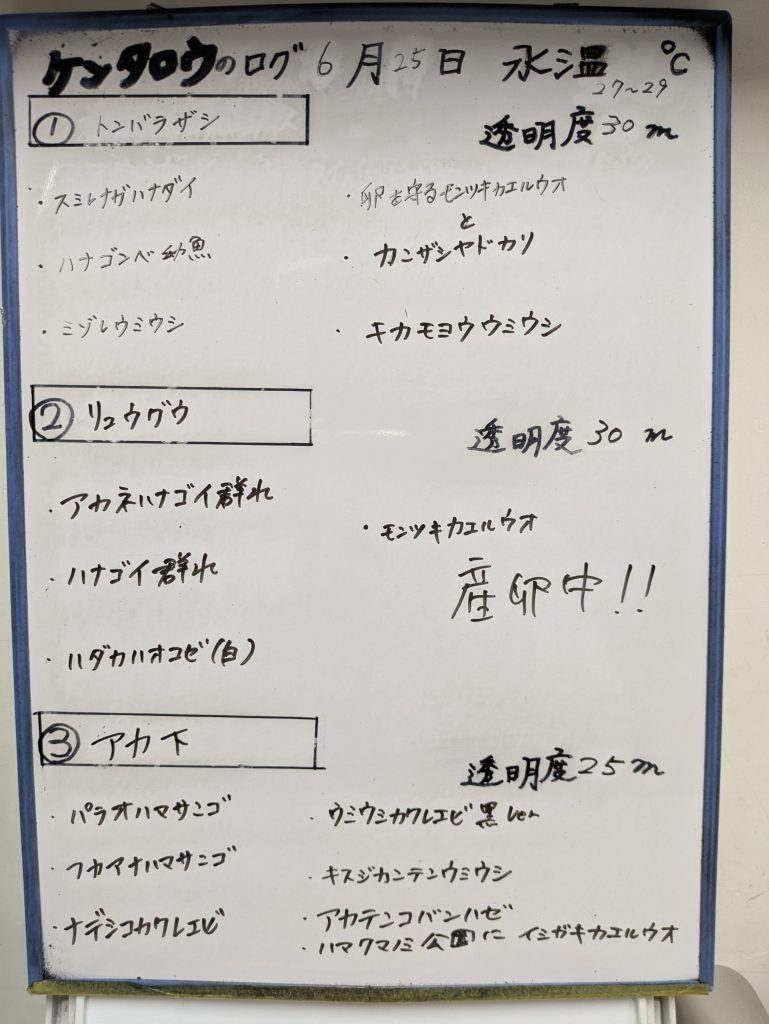 ケンタロウのログ 6月25日 水温 27〜29 ℃
① トンバラザシ
透明度30m
・スミレナガハナダイ
・ハナゴンベ幼魚
・ミゾレウミウシ
・卵を守るモンツキカエルウオ
と
・カンザシヤドカリ
・キカモヨウウミウシ
② リュウグウ
透明度30m
・アカネハナゴイ群れ
・ハナゴイ群れ
・ハダカハオコゼ(白)
・モンツキカエルウオ
産卵中!!
③ アカ下
透明度25m
・パラオハマサンゴ
・フカアナハマサンゴ
・ナデシコカクレエビ
・ウミウシカクレエビ黒ver
・キスジカンテンウミウシ
・アカテンコバンハゼ
・ハマクマノミ公園に イシガキカエルウオ